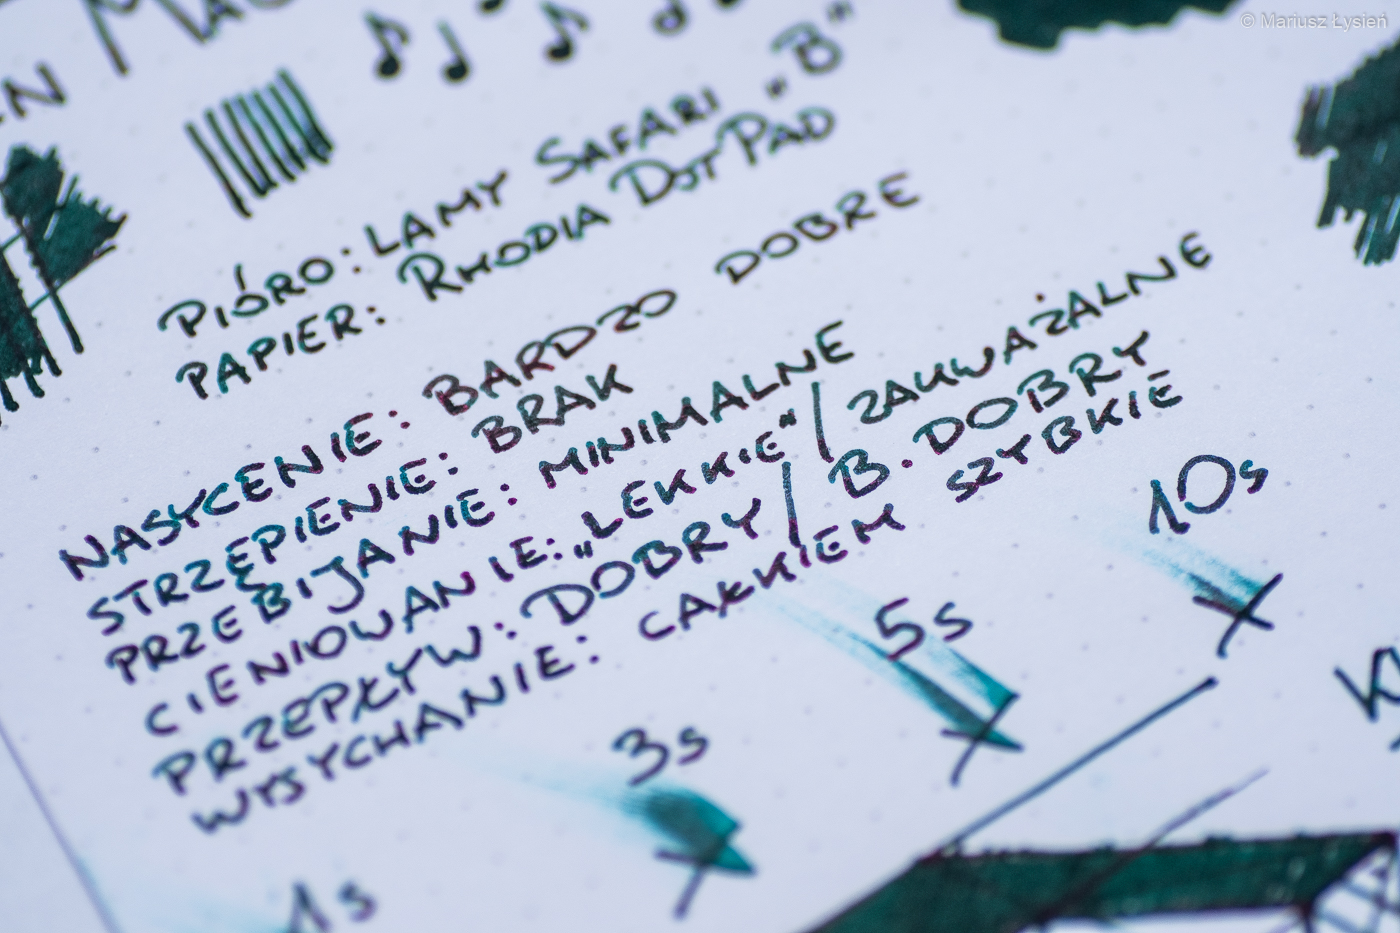 © Mariusz Łysień
PIÓRO: LAMY SAFARI „B"
PAPIER: RHODIA DOTPAD
NASYCENIE: BARDZO DOBRE
STRZĘPIENIE: BRAK
PRZEBIJANIE: MINIMALNE
CIENIOWANIE: „LEKKIE" / ZAUWAŻALNE
PRZEPŁYW: DOBRY / B. DOBRY
WYSYCHANIE: CAŁKIEM SZYBKIE
1s
3s
5s
10s